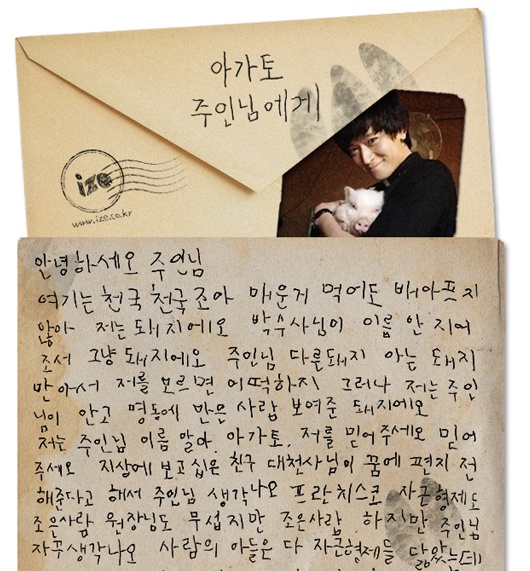 아가토
주인님에게
ize
www.ize.co.kr
안녕하세오 주인님
여기는 천국 천국조아 매운게 먹어도 배아프지
않아 저는 돼지에오 박수사님이 이름 안 지어
조서 그냥 돼지에오 주인님 다른돼지 아는 돼지
만아서 저를 모르면 어떡하지 그러나 저는 주인
님이 안고 명동에 만은 사람 보여준 돼지에오
저는 주인님 이름 알아. 아가토. 저를 믿어주세오 믿어
주세오 지상에 보고십은 친구 대천사님이 꿈에 편지 전
해준다고 해서 주인님 생각나오 프란치스코 자근형제도
조은사람 원장님도 무섭지만 조은사람 하지만 주인님
자꾸생각나오 사람의 아들은 다 자근형제들 닮았는데